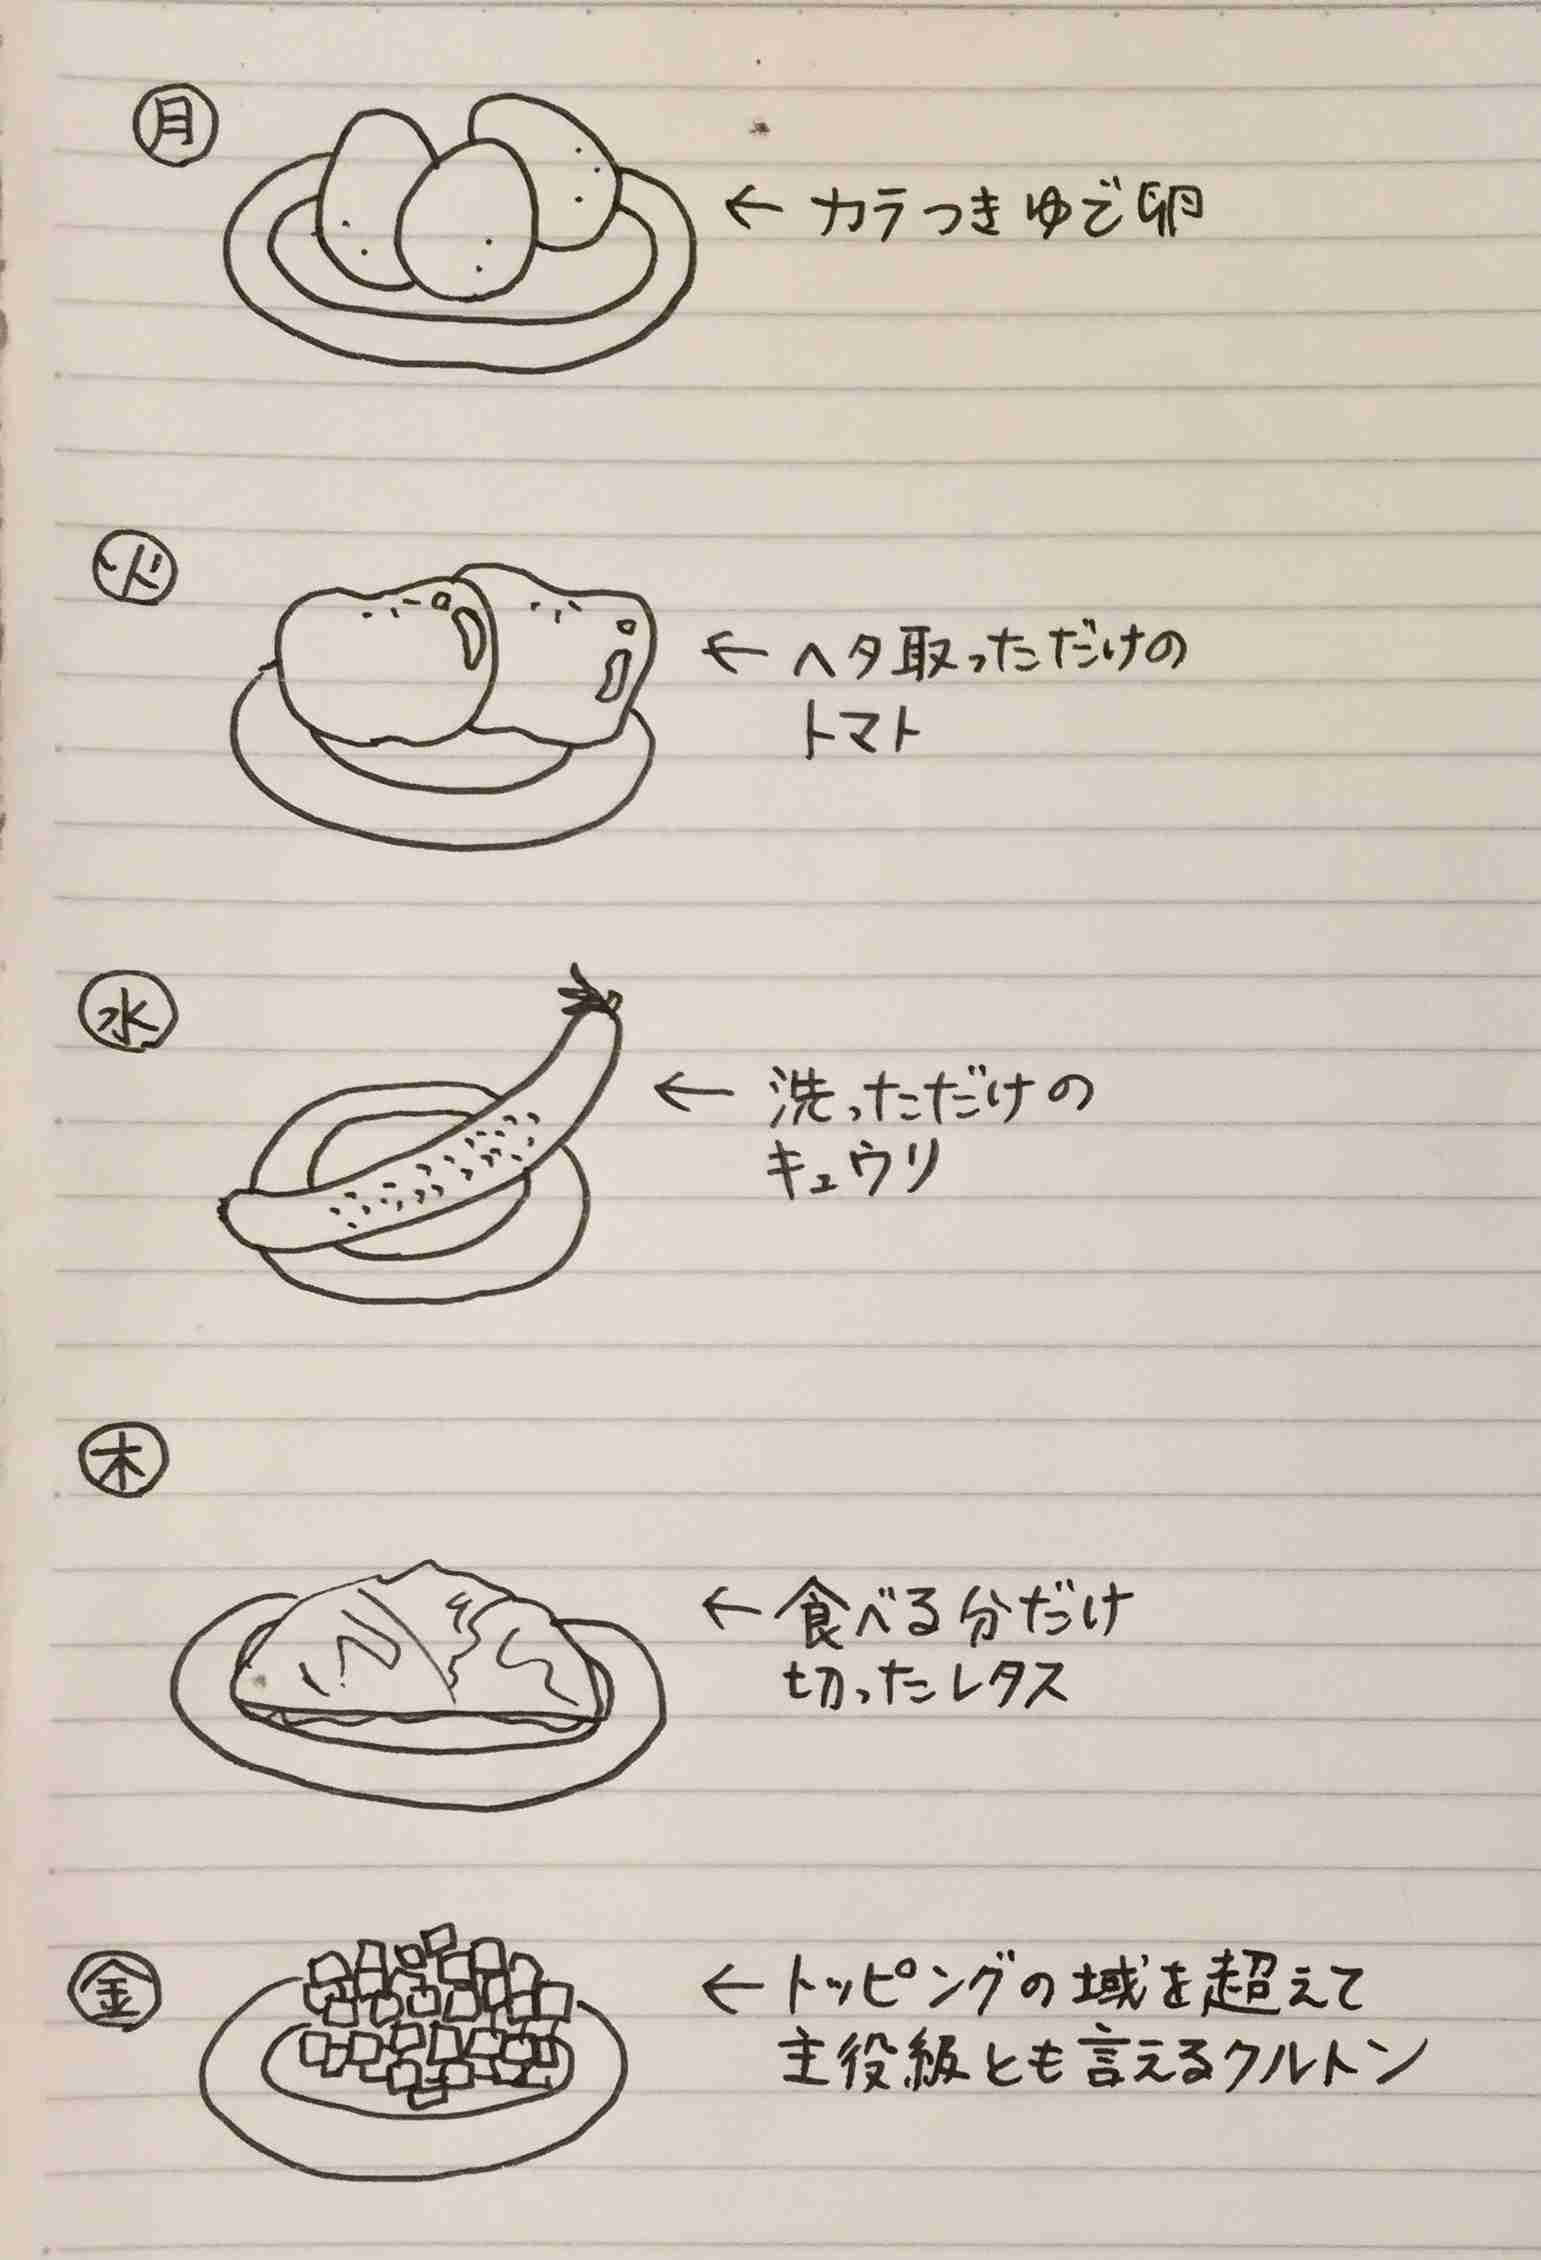 月
← カラつきゆで卵
火
← ヘタ取っただけの
トマト
水
← 洗っただけの
キュウリ
木
← 食べる分だけ
切ったレタス
金
← トッピングの域を超えて
主役級とも言えるクルトン